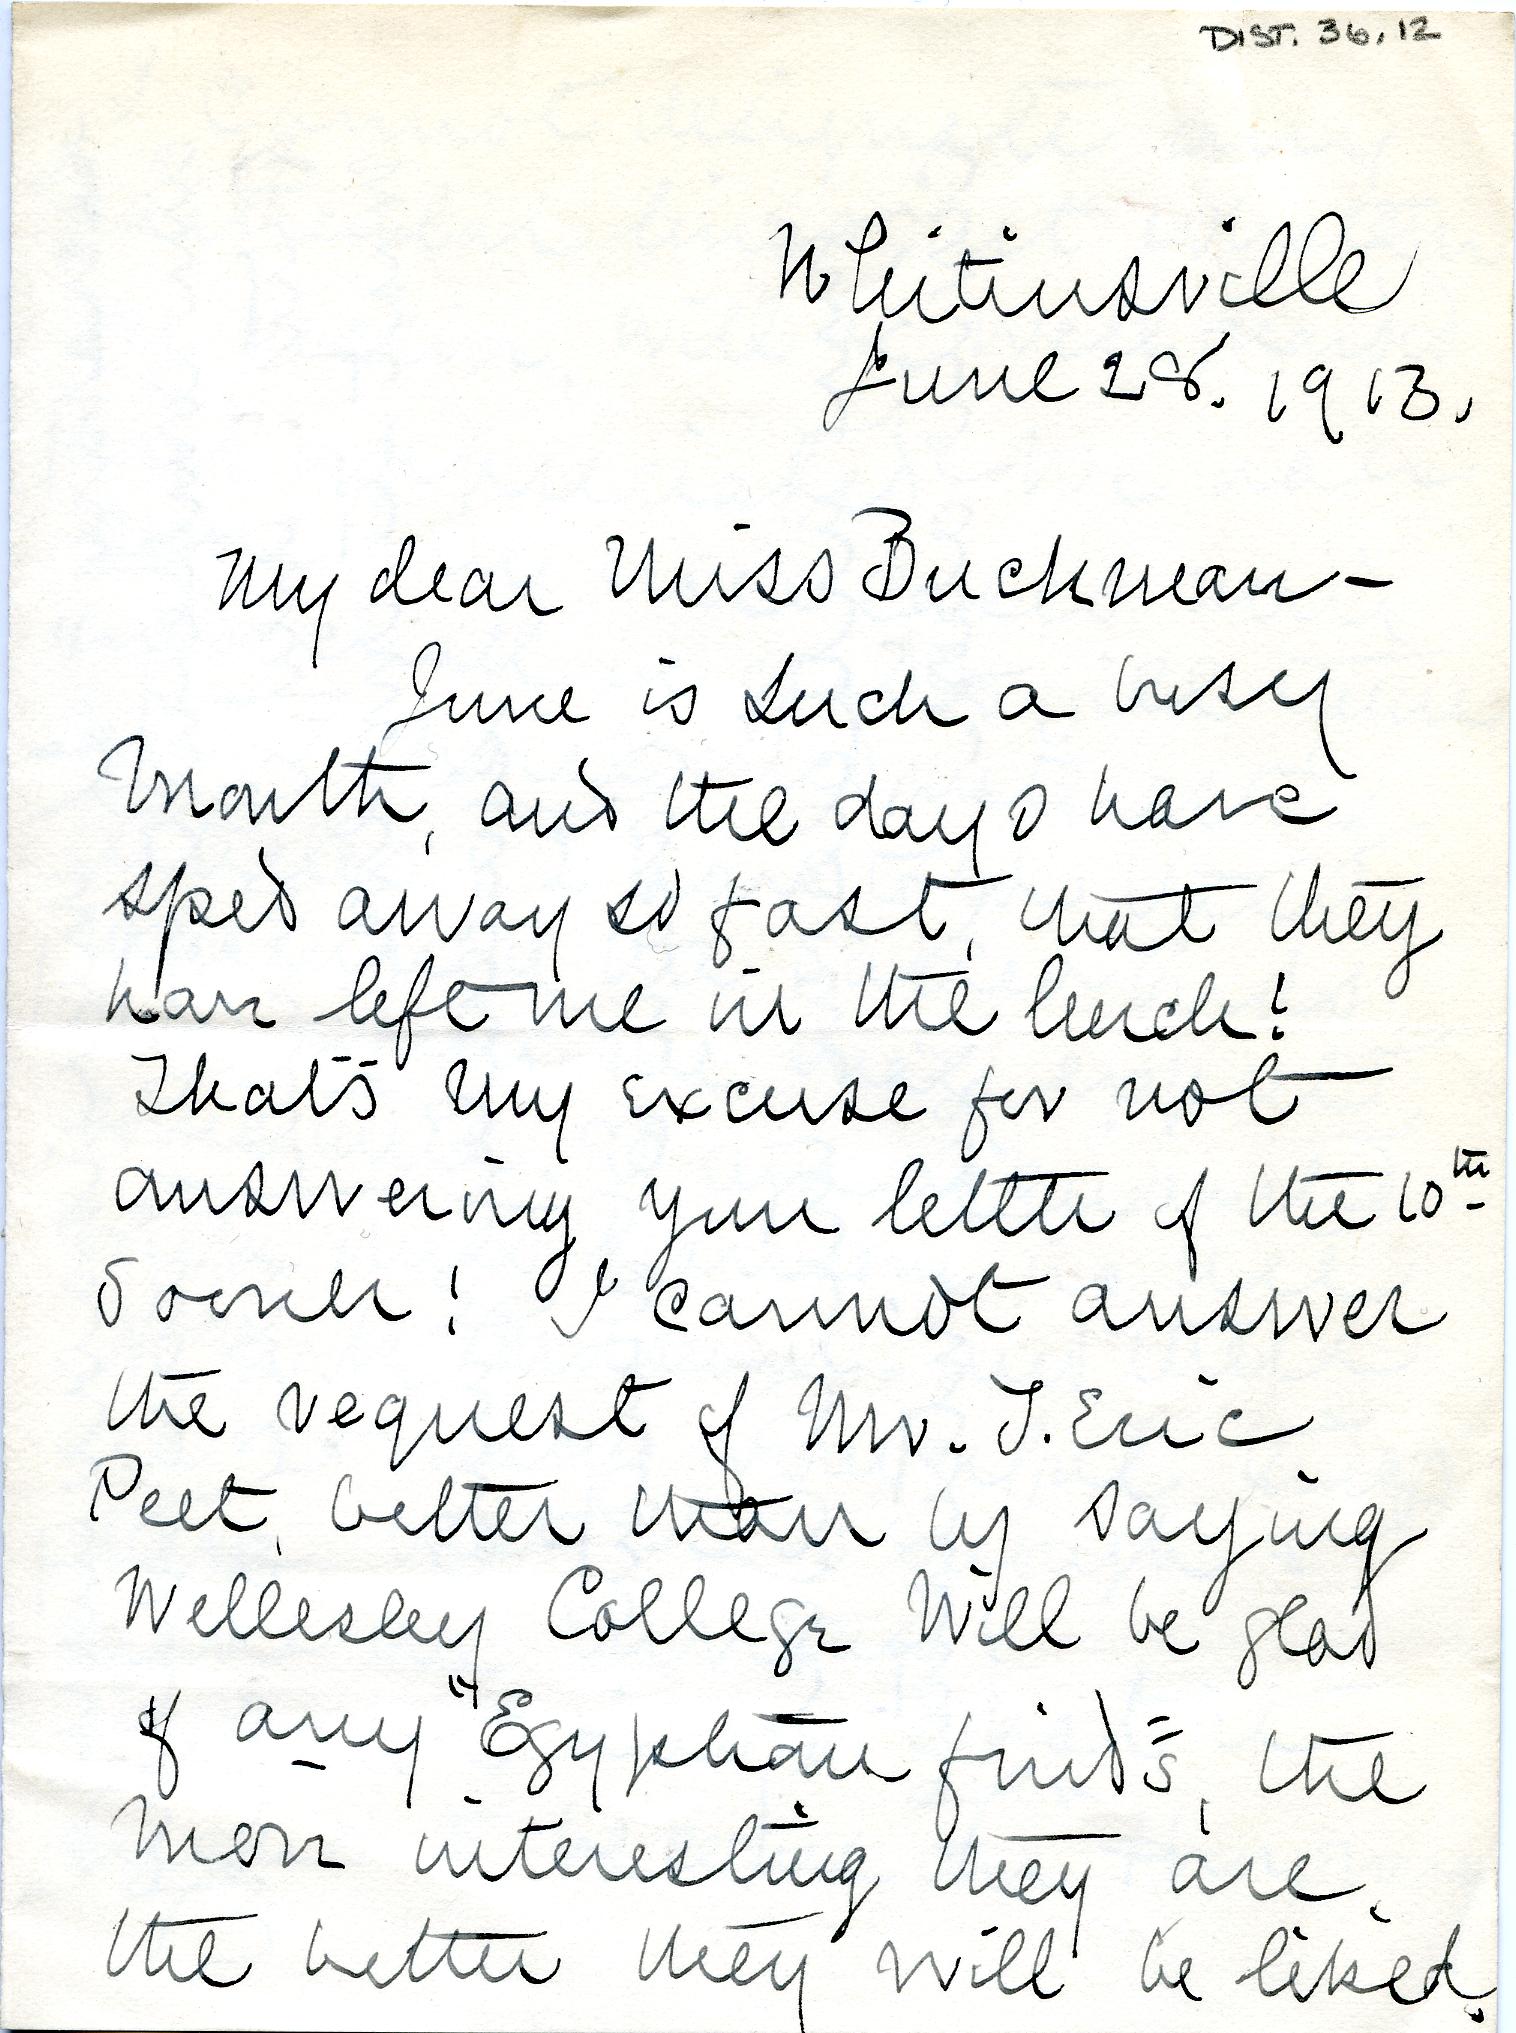 DIST. 36.12
Whitinsville
June 28. 1913.
My dear Miss Buckman–
June is such a busy
month, and the days have
sped away so fast, that they
have left me in the lurch!
That's my excuse for not
answering your letter of the 10th
sooner! I cannot answer
the request of Mr. T. Eric
Peet, better than by saying
Wellesley College will be glad
of any "Egyptian finds", the
more interesting they are,
the better they will be liked.